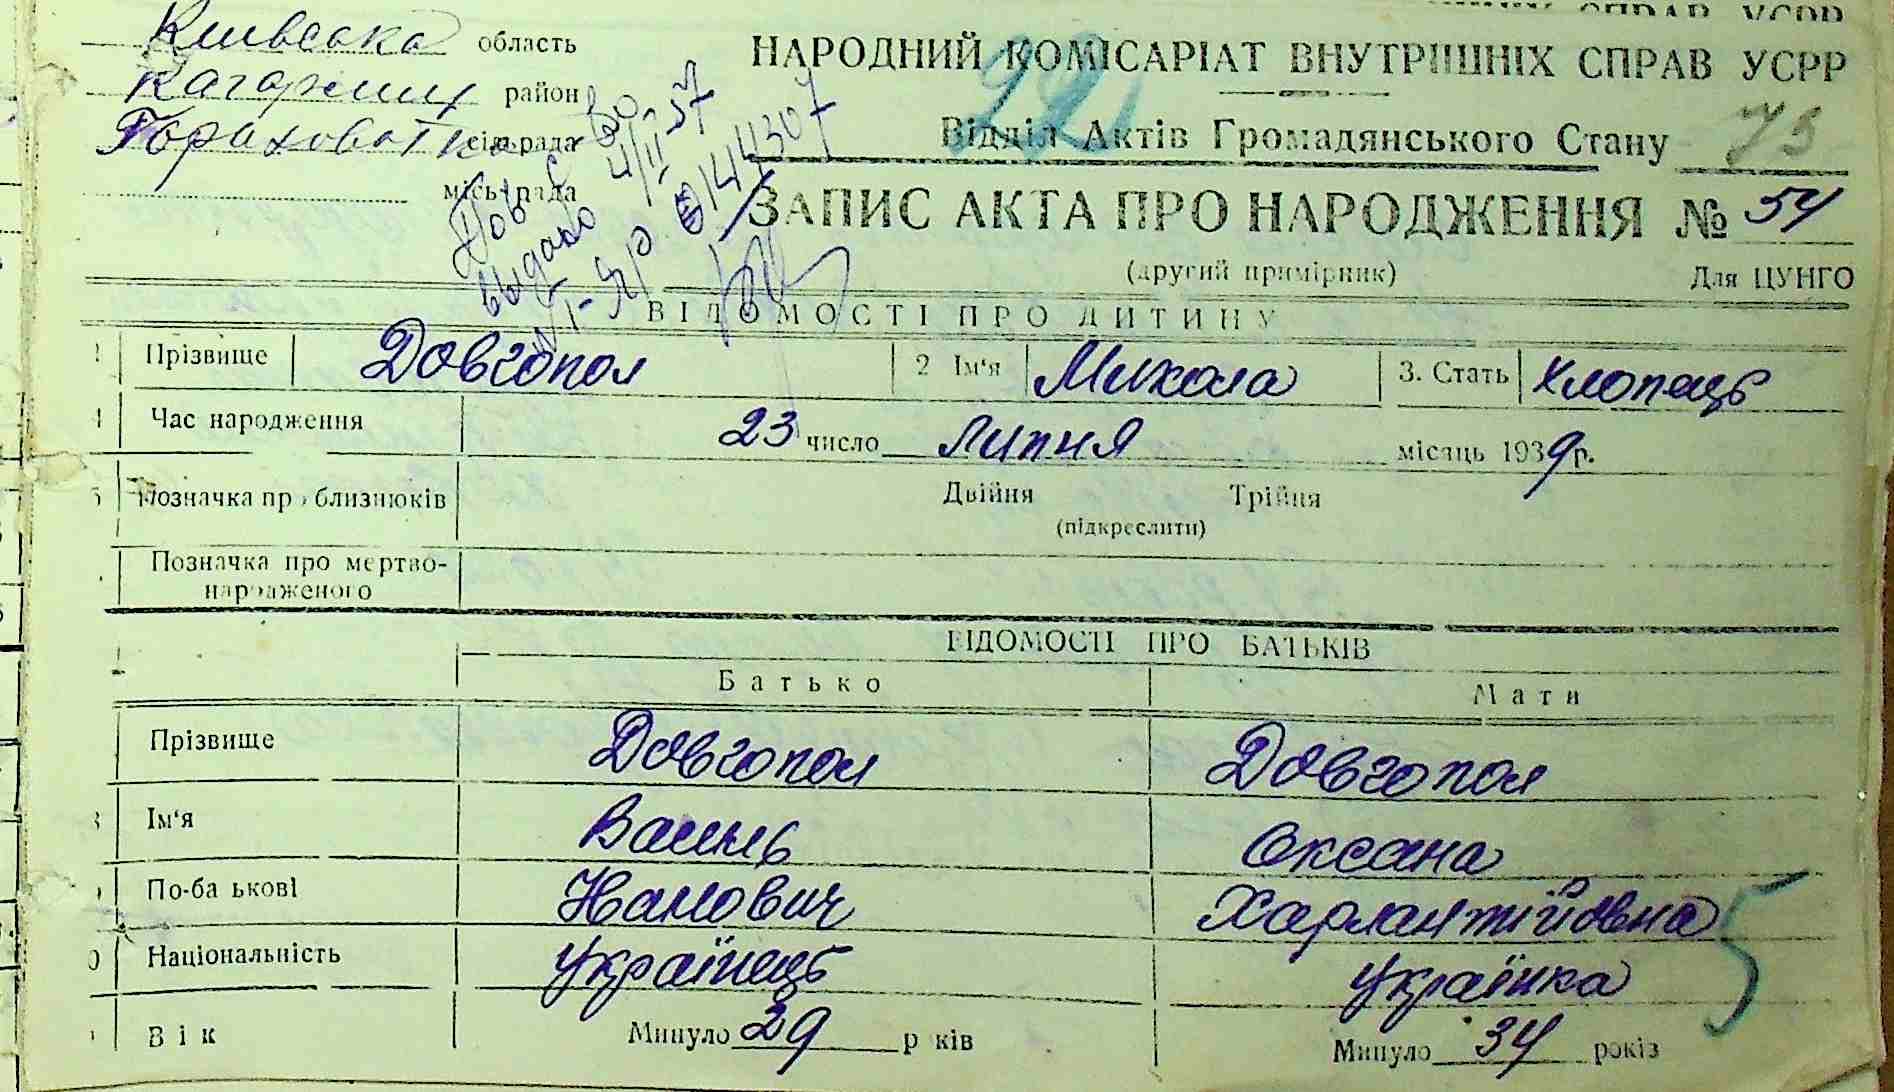 Київська область
Кагарлиц район
Горохова сільрада
міськрада
НАРОДНИЙ КОМІСАРІАТ ВНУТРІШНІХ СПРАВ УСРР
22
Відділ Актів Громадянського Стану 75
ЗАПИС АКТА ПРО НАРОДЖЕННЯ № 54
(другий примірник) Для ЦУНГО
4/II-57
выдано
ВІДОМОСТІ ПРО ДИТИНУ
Прізвище Довгопол 2 Ім'я Микола 3. Стать хлопець
Час народження 23 число липня місяць 1939 р.
Позначка про близнюків Двійня Трійня
(підкреслити)
Позначка про мертво-
народженого
ВІДОМОСТІ ПРО БАТЬКІВ
Батько Мати
Прізвище Довгопол Довгопол
Ім'я Василь Оксана
По-ба ькові Харлантійовна
Національність українець українка
5
Вік Минуло 29 р ків Минуло 34 років